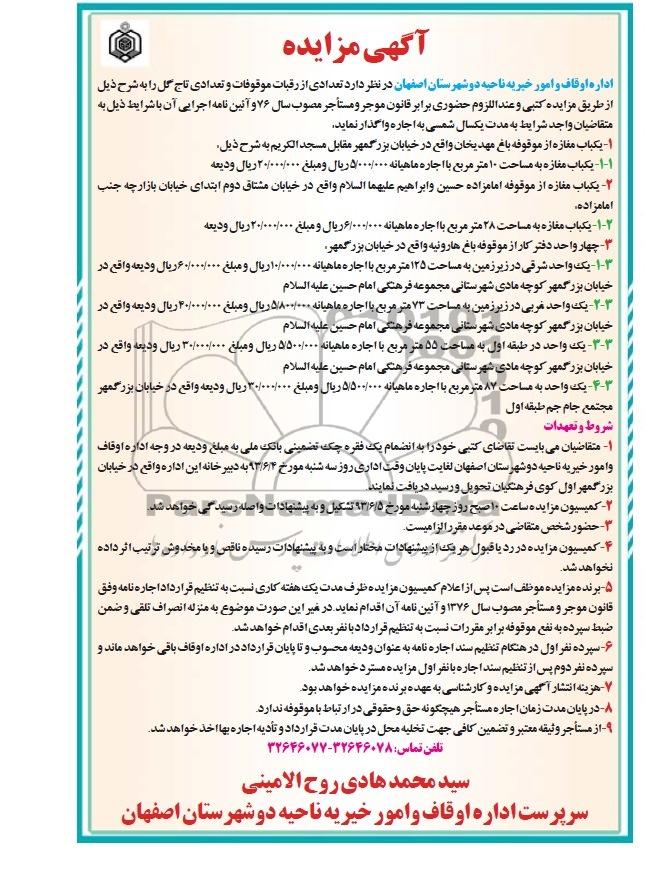 آگهی مزایده
اداره اوقاف و امور خیریه ناحیه دو شهرستان اصفهان در نظر دارد تعدادی از رقبات موقوفات و تعدادی تاج گل را به شرح ذیل
از طریق مزایده کتبی و عنداللزوم حضوری برابر قانون موجر و مستأجر مصوب سال ۷۶ و آئین نامه اجرایی آن با شرایط ذیل به
متقاضیان واجد شرایط به مدت یکسال شمسی به اجاره واگذار نماید،
۱- یکباب مغازه از موقوفه باغ مهدیخان واقع در خیابان بزرگمهر مقابل مسجد الکریم به شرح ذیل،
۱-۱- یکباب مغازه به مساحت ۱۰ متر مربع با اجاره ماهیانه ۵/۰۰۰/۰۰۰ ریال و مبلغ ۲۰/۰۰۰/۰۰۰ ریال ودیعه
۲- یکباب مغازه از موقوفه امامزاده حسین و ابراهیم علیهما السلام واقع در خیابان مشتاق دوم ابتدای خیابان بازارچه جنب
امامزاده،
۱-۲- یکباب مغازه به مساحت ۲۸ متر مربع با اجاره ماهیانه ۶/۰۰۰/۰۰۰ ریال و مبلغ ۲۰/۰۰۰/۰۰۰ ریال ودیعه
۳- چهار واحد دفتر کار از موقوفه باغ هارونیه واقع در خیابان بزرگمهر،
۱-۳- یک واحد شرقی در زیرزمین به مساحت ۱۲۵ متر مربع با اجاره ماهیانه ۱۰/۰۰۰/۰۰۰ ریال و مبلغ ۶۰/۰۰۰/۰۰۰ ریال ودیعه واقع در
خیابان بزرگمهر کوچه مادی شهرستانی مجموعه فرهنگی امام حسین علیه السلام
۲-۳- یک واحد غربی در زیرزمین به مساحت ۷۳ متر مربع با اجاره ماهیانه ۵/۸۰۰/۰۰۰ ریال و مبلغ ۴۰/۰۰۰/۰۰۰ ریال ودیعه واقع در
خیابان بزرگمهر کوچه مادی شهرستانی مجموعه فرهنگی امام حسین علیه السلام
۳-۳- یک واحد در طبقه اول به مساحت ۵۵ متر مربع با اجاره ماهیانه ۵/۵۰۰/۰۰۰ ریال و مبلغ ۳۰/۰۰۰/۰۰۰ ریال ودیعه واقع در
خیابان بزرگمهر کوچه مادی شهرستانی مجموعه فرهنگی امام حسین علیه السلام
۴-۳- یک واحد به مساحت ۸۷ متر مربع با اجاره ماهیانه ۵/۵۰۰/۰۰۰ ریال و مبلغ ۳۰/۰۰۰/۰۰۰ ریال ودیعه واقع در خیابان بزرگمهر
مجتمع جام جم طبقه اول
شروط و تعهدات
۱- متقاضیان می بایست تقاضای کتبی خود را به انضمام یک فقره چک تضمینی بانک ملی به مبلغ ودیعه در وجه اداره اوقاف
و امور خیریه ناحیه دو شهرستان اصفهان لغایت پایان وقت اداری روز سه شنبه مورخ ۹۳/۶/۴ به دبیرخانه این اداره واقع در خیابان
بزرگمهر اول کوی فرهنگیان تحویل و رسید دریافت نمایند.
۲- کمیسیون مزایده ساعت ۱۰ صبح روز چهارشنبه مورخ ۹۳/۶/۵ تشکیل و به پیشنهادات واصله رسیدگی خواهد شد.
۳- حضور شخص متقاضی در موعد مقرر الزامیست.
۴- کمیسیون مزایده در رد یا قبول هر یک از پیشنهادات مختار است و به پیشنهادات رسیده ناقص و یا مخدوش ترتیب اثر داده
نخواهد شد.
۵- برنده مزایده موظف است پس از اعلام کمیسیون مزایده ظرف مدت یک هفته کاری نسبت به تنظیم قرارداد اجاره نامه وفق
قانون موجر و مستأجر مصوب سال ۱۳۷۶ و آئین نامه آن اقدام نماید. در غیر این صورت موضوع به منزله انصراف تلقی و ضمن
ضبط سپرده به نفع موقوفه برابر مقررات نسبت به تنظیم قرارداد با نفر بعدی اقدام خواهد شد.
۶- سپرده نفر اول در هنگام تنظیم سند اجاره نامه به عنوان ودیعه محسوب و تا پایان قرارداد در اداره اوقاف باقی خواهد ماند و
سپرده نفر دوم پس از تنظیم سند اجاره با نفر اول مزایده مسترد خواهد شد.
۷- هزینه انتشار آگهی مزایده و کارشناسی به عهده برنده مزایده خواهد بود.
۸- در پایان مدت زمان اجاره مستأجر هیچگونه حق و حقوقی در ارتباط با موقوفه ندارد.
۹- از مستأجر وثیقه معتبر و تضمین کافی جهت تخلیه محل در پایان مدت قرارداد و تأدیه اجاره بها اخذ خواهد شد.
تلفن تماس: ۳۲۶۴۶۰۷۸-۳۲۶۴۶۰۷۷
سید محمد هادی روح الامینی
سرپرست اداره اوقاف و امور خیریه ناحیه دو شهرستان اصفهان
ParsNamadData